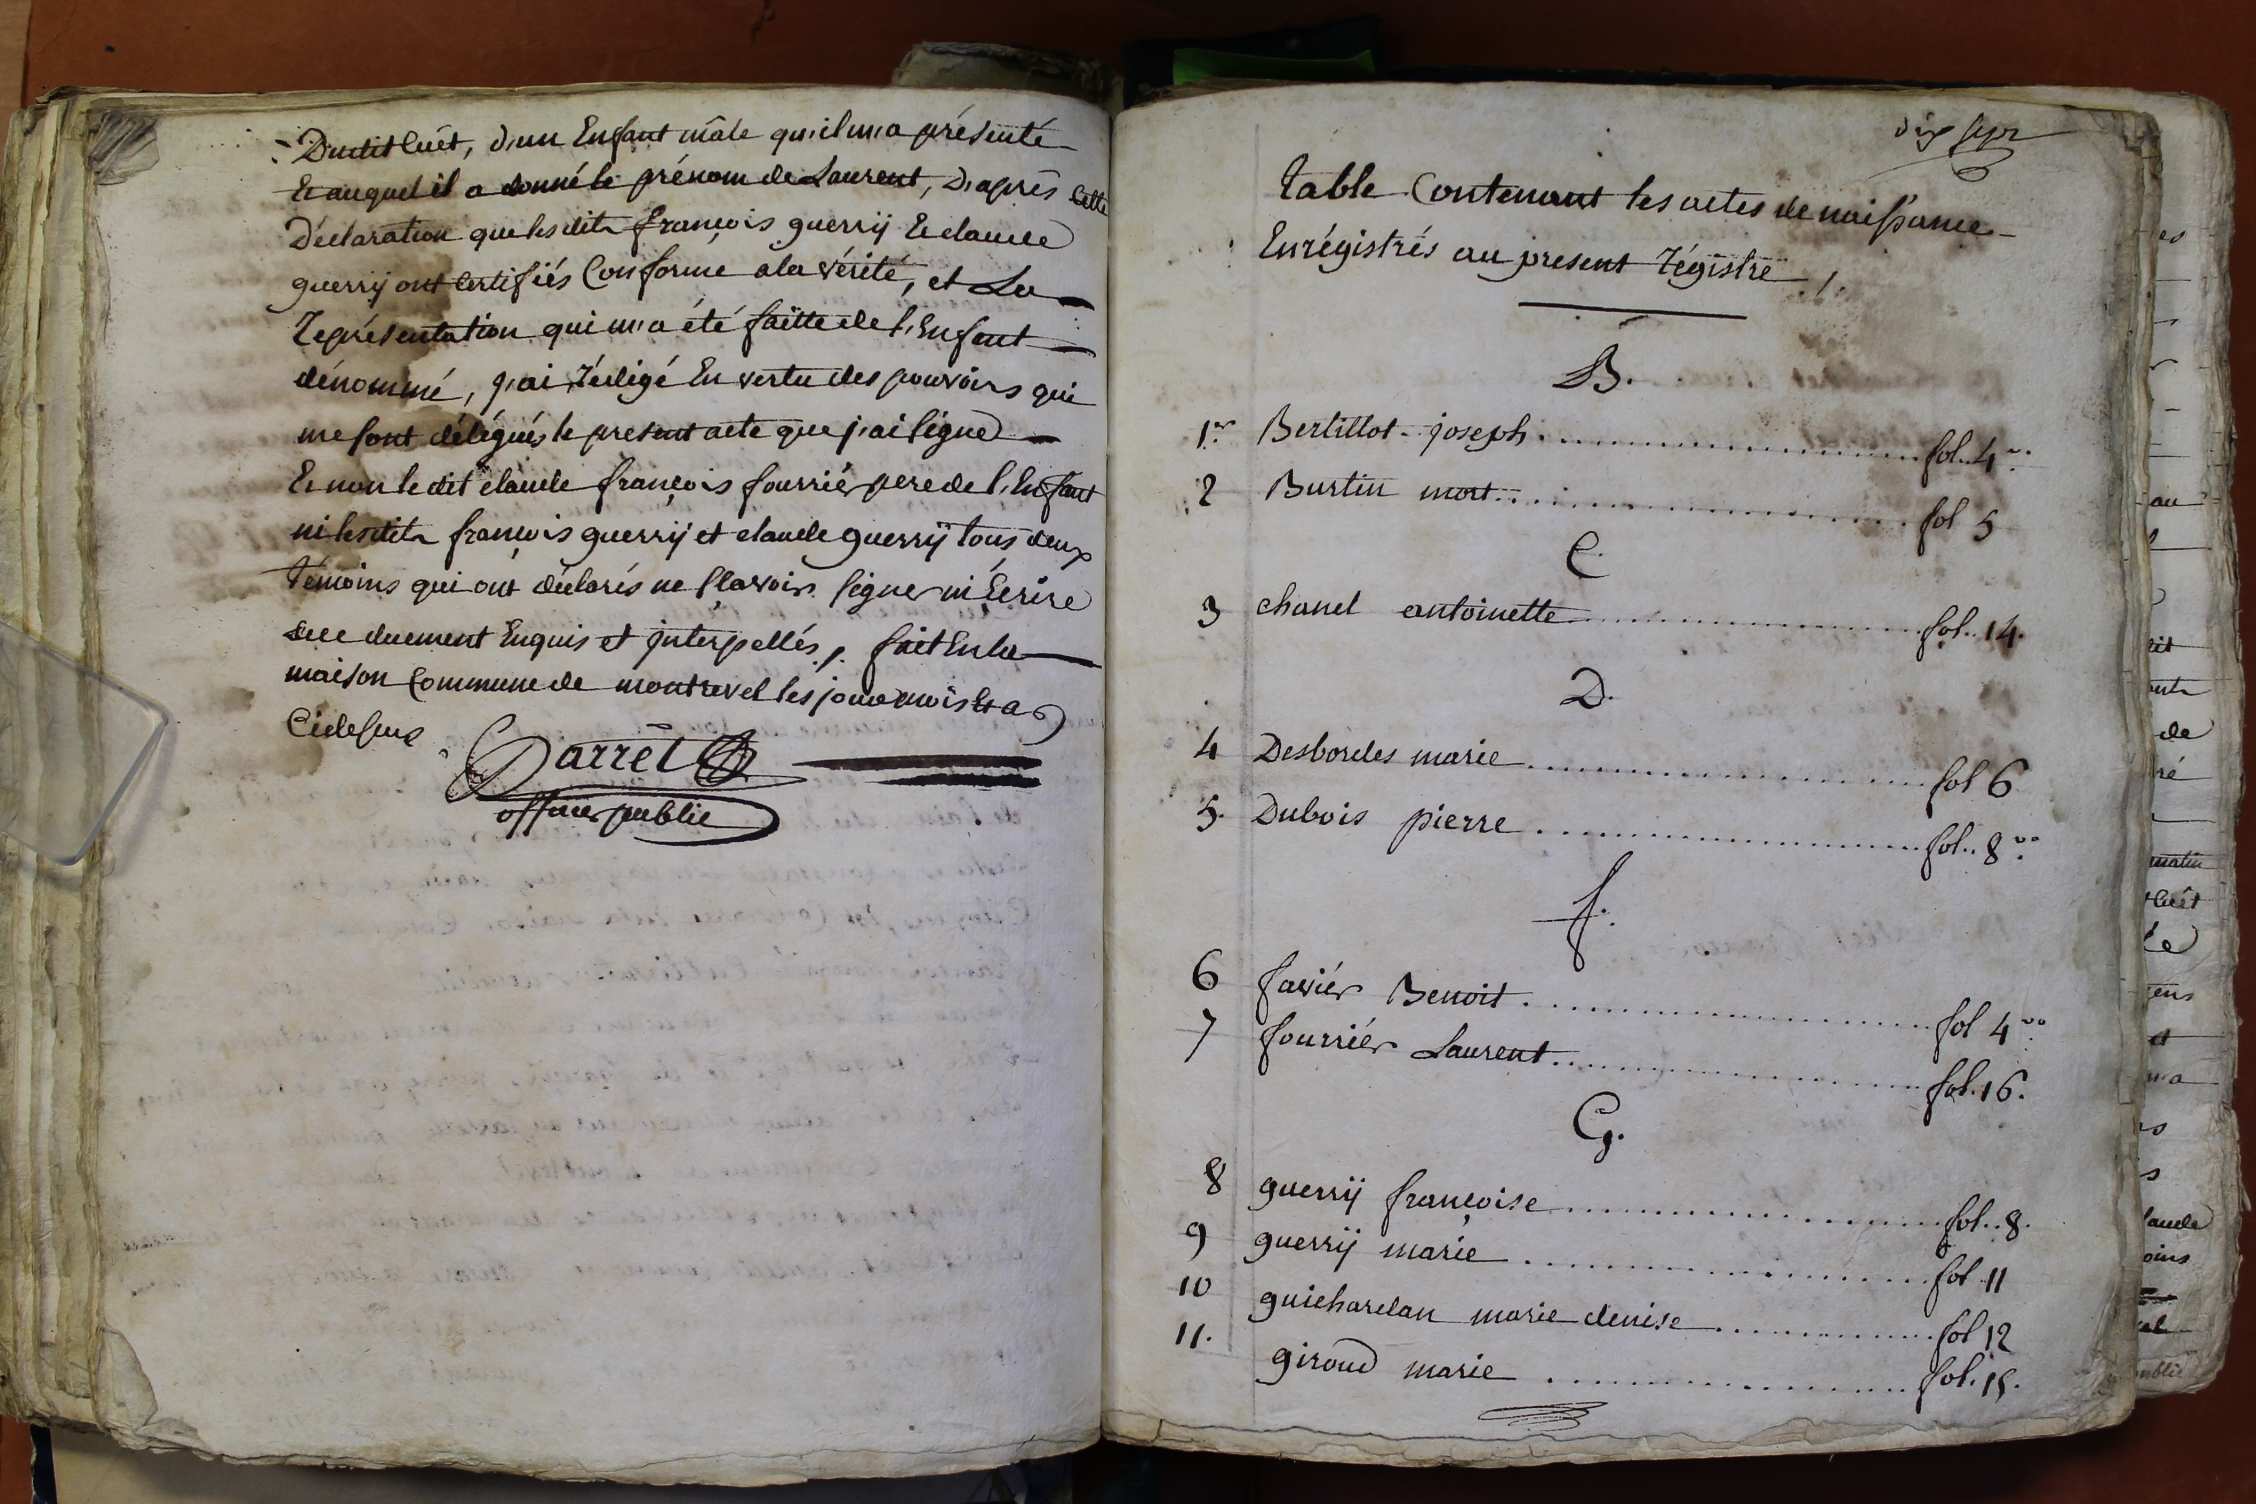 Dudit Cuêt, d'un Enfant mâle qu'il m'a présenté
Et auquel il a donné le prénom de Laurent, D'après Cette
Déclaration que lesdits françois guerrÿ Et claude
guerrÿ ont Certifiés Conforme a la vérité, et La
Représentation qui m'a été faitte de l'Enfant
dénommé, j'ai Rédigé En vertu des pouvoirs qui
me sont délégués le present acte que j'ai signé
Et non ledit claude françois fourriér pere de l'Enfant
ni lesdits françois guerrÿ et claude guerrÿ tous deux
témoins qui ont déclarés ne sçavoir signer ni Ecrire
de ce duement Enquis et interpellés, fait En la
maison Commune de montrevel les jour mois Et a
Cidessus
Parret
officier public
dix sept
table Contenant les actes de naissance
Enrégistrés au present Régistre
B.
1er Bertillot joseph fol. 4 vo.
2 Burtin mort fol 5
C.
3 chanel antoinette fol. 14.
D.
4 Desbordes marie fol 6
5. Dubois pierre fol. 8 vo.
f.
6 faviér Benoit fol 4 vo.
7 fourriér Laurent fol. 16.
G.
8 guerrÿ françoise fol. 8.
9 guerrÿ marie fol 11
10 guichardan marie denise fol 12
11. giroud marie fol. 15.